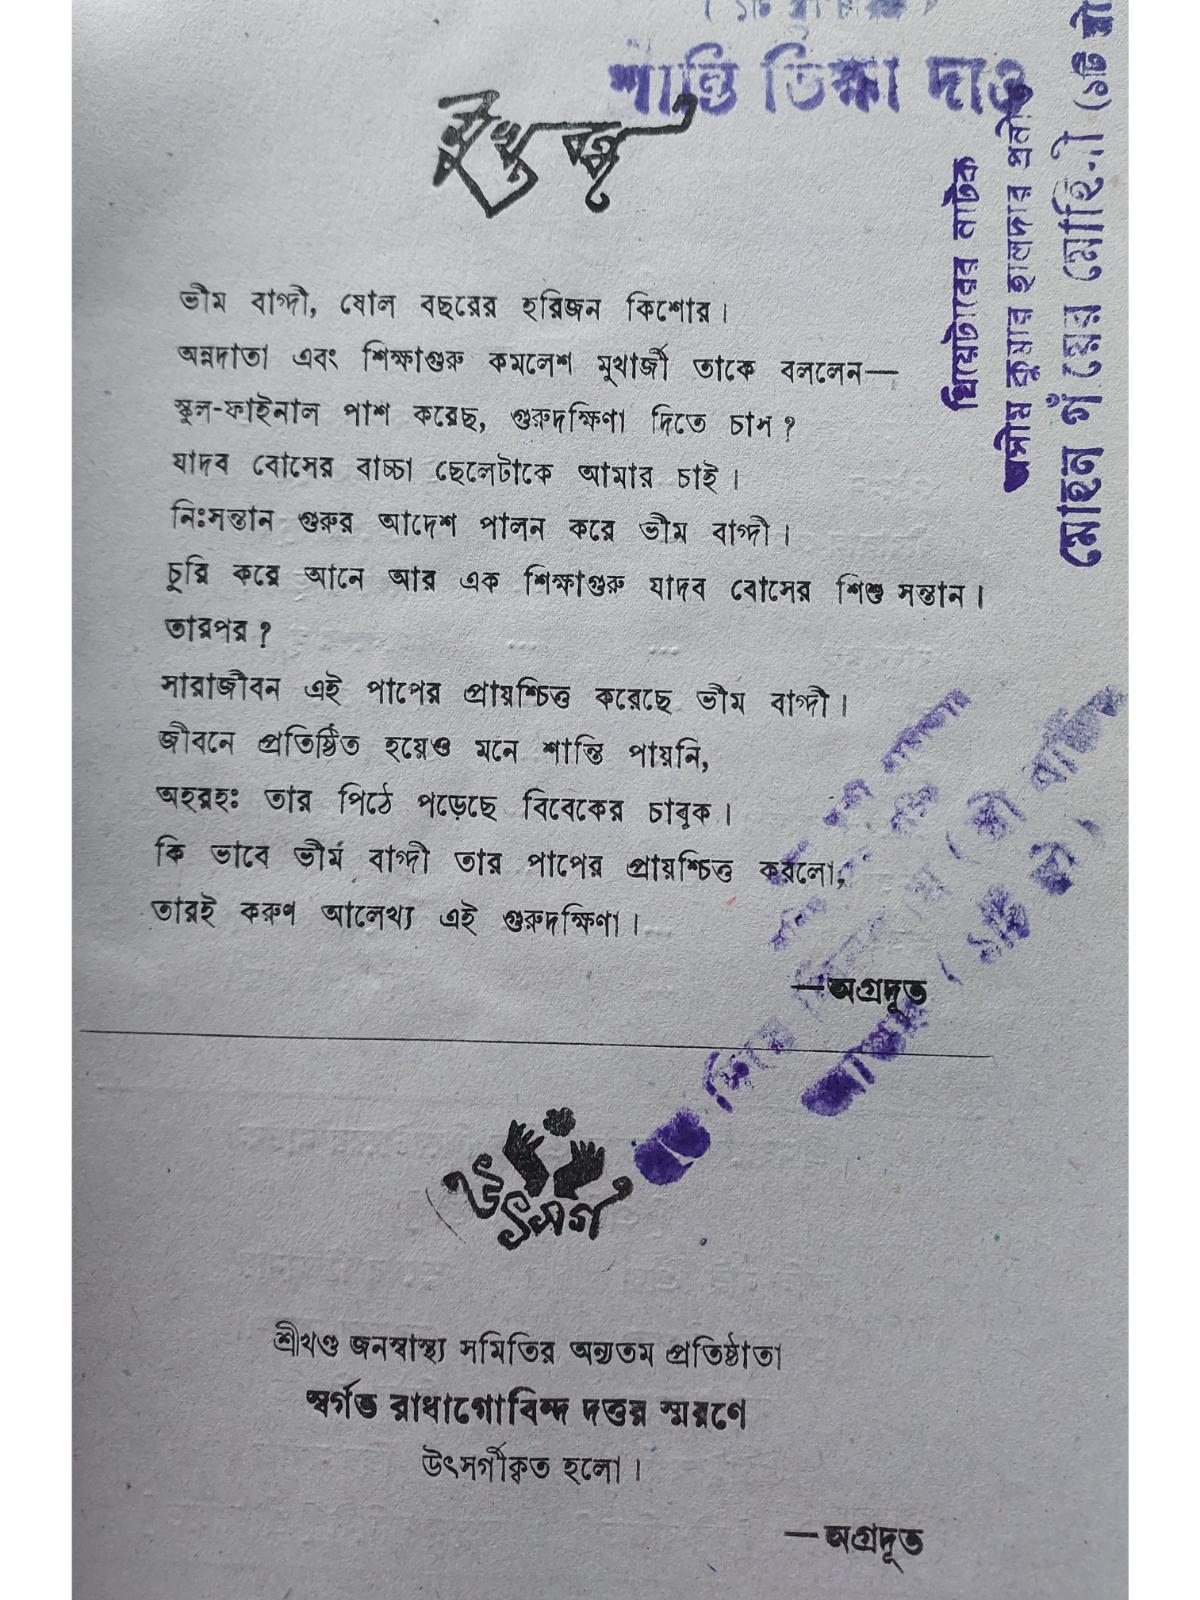 শান্তি ভিক্ষা দাও
মুখবন্ধ
ভীম বাগ্দী, ষোল বছরের হরিজন কিশোর।
অন্নদাতা এবং শিক্ষাগুরু কমলেশ মুখার্জী তাকে বললেন—
স্কুল-ফাইনাল পাশ করেছ, গুরুদক্ষিণা দিতে চাস?
যাদব বোসের বাচ্চা ছেলেটাকে আমার চাই।
নিঃসন্তান গুরুর আদেশ পালন করে ভীম বাগ্দী।
চুরি করে আনে আর এক শিক্ষাগুরু যাদব বোসের শিশু সন্তান।
তারপর?
সারাজীবন এই পাপের প্রায়শ্চিত্ত করেছে ভীম বাগ্দী।
জীবনে প্রতিষ্ঠিত হয়েও মনে শান্তি পায়নি,
অহরহঃ তার পিঠে পড়েছে বিবেকের চাবুক।
কি ভাবে ভীম বাগ্দী তার পাপের প্রায়শ্চিত্ত করলো,
তারই করুণ আলেখ্য এই গুরুদক্ষিণা।
—অগ্রদূত
উৎসর্গ
শ্রীখণ্ড জনস্বাস্থ্য সমিতির অন্যতম প্রতিষ্ঠাতা
স্বর্গত রাধাগোবিন্দ দত্তর স্মরণে
উৎসর্গীকৃত হলো।
—অগ্রদূত
থিয়েটারের নাটক
অসীম কুমার হালদার
মোহন গাঁয়ের মোহিনী